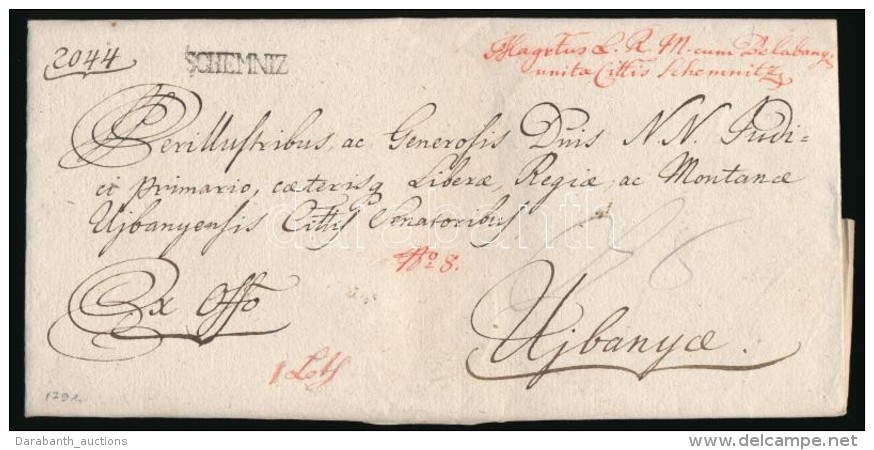 2044
SCHEMNIZ
Magrtus L. R. M. cum Belabanya
unitæ Cittis Schemnitz
Perillustribus ac Generosis Dnis N N. Judi-
ci primario, cæterisq Liberæ, Regiæ, ac Montanæ
Ujbanyensis Cittis Senatoribus
No 8.
Ex Offo
Ujbanyæ.
1 Loth
1791.
darabanth
Darabanth_auctions
delcampe.net